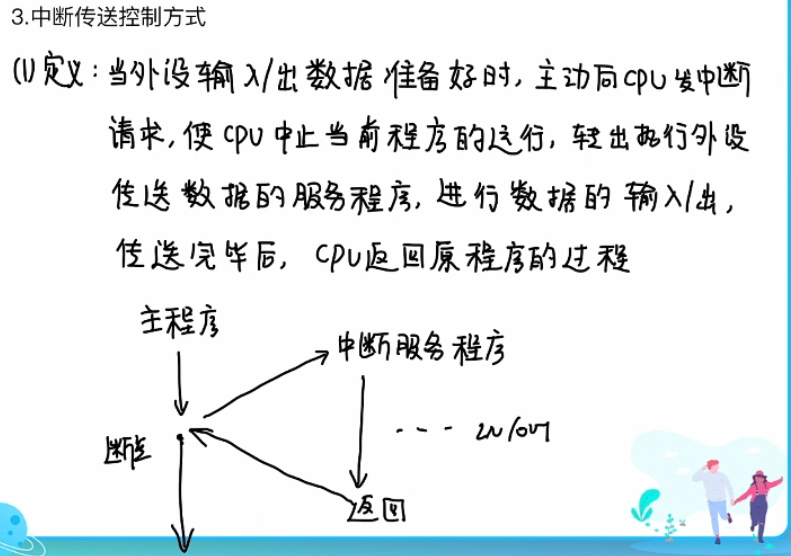 3.中断传送控制方式
(1)定义:当外设输入/出数据准备好时,主动向CPU发中断
请求,使CPU中止当前程序的运行,转出执行外设
传送数据的服务程序,进行数据的输入/出,
传送完毕后,CPU返回原程序的过程
主程序
中断服务程序
断点
--- in/out
返回